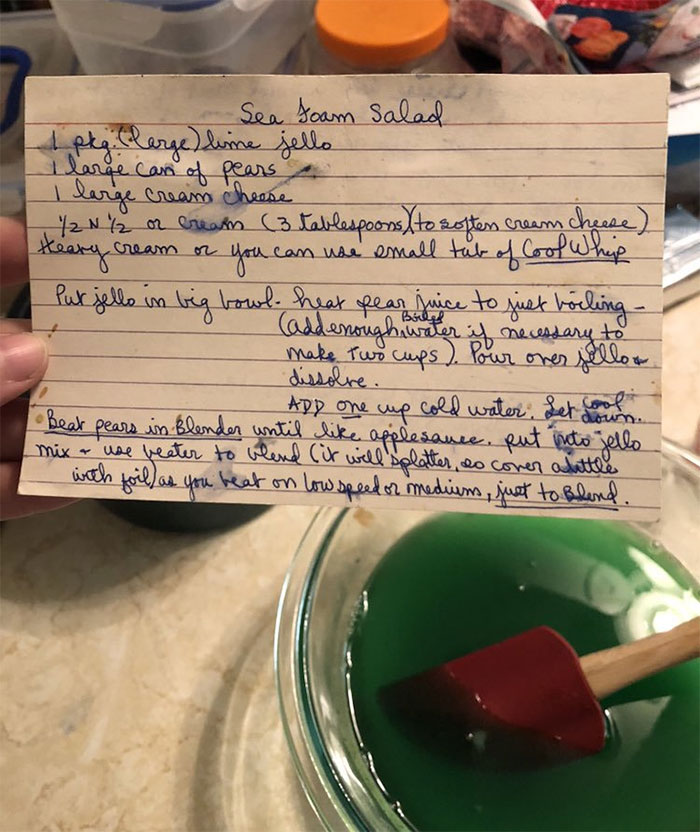 Sea Foam Salad
1 pkg. (large) lime jello
1 large can of pears
1 large cream cheese
½ N ½ or cream (3 tablespoons) (to soften cream cheese)
Heavy cream or you can use small tub of Cool Whip
Put jello in big bowl - heat pear juice to just boiling -
(add enough Boiled water if necessary to
make Two cups). Pour over jello &
dissolve.
ADD one cup cold water. Let cool down.
Beat pears in Blender until like applesauce. put into jello
mix & use beater to blend (it will splatter, so cover a little
with foil) as you beat on low speed or medium, just to Blend.